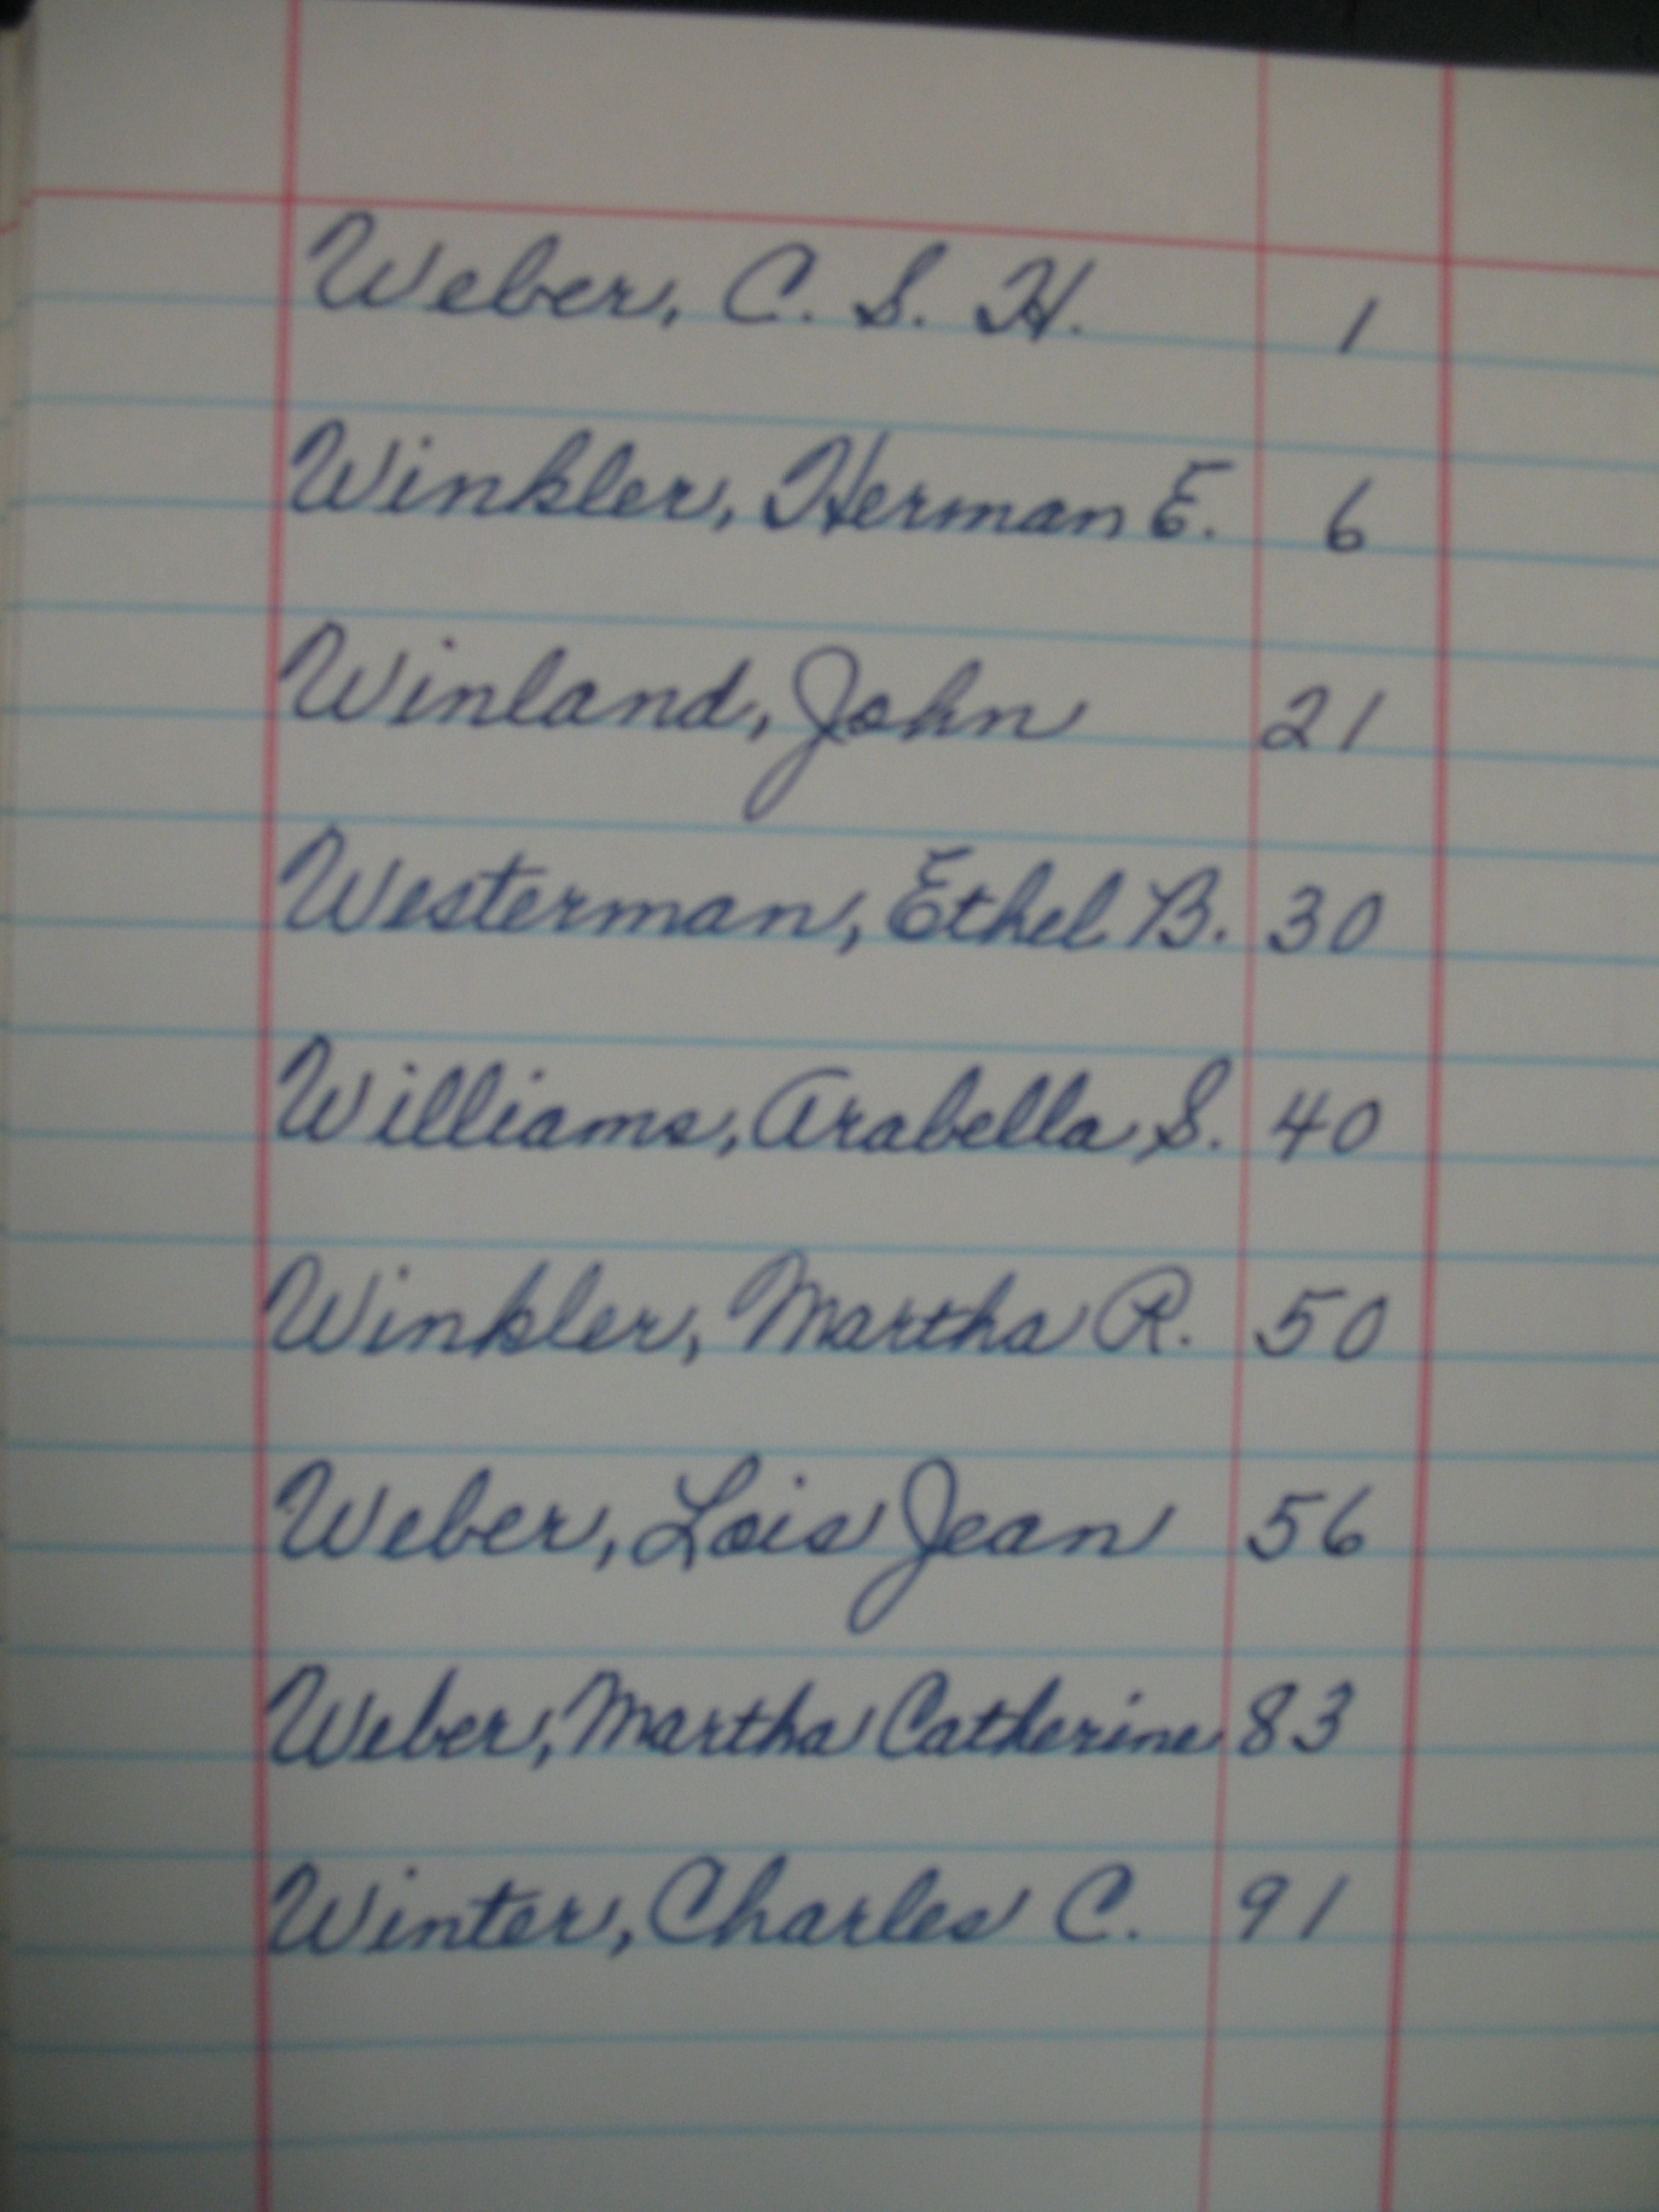 Weber, C. S. H. 1
Winkler, Herman E. 6
Winland, John 21
Westerman, Ethel B. 30
Williams, Arabella S. 40
Winkler, Martha R. 50
Weber, Lois Jean 56
Weber, Martha Catherine 83
Winter, Charles C. 91